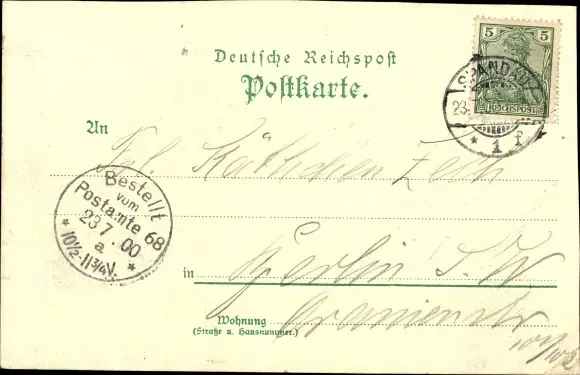 Deutsche Reichspost
Postkarte.
5 5
REICHSPOST
SPANDAU
23.
* 1 f
An
Frl. Käthchen Zech
Bestellt
vom
Postamte 68
23 7. 00
a
* 10½-11¾V. *
in Berlin S. W
Wohnung Oranienstr
(Straße u. Hausnummer.)